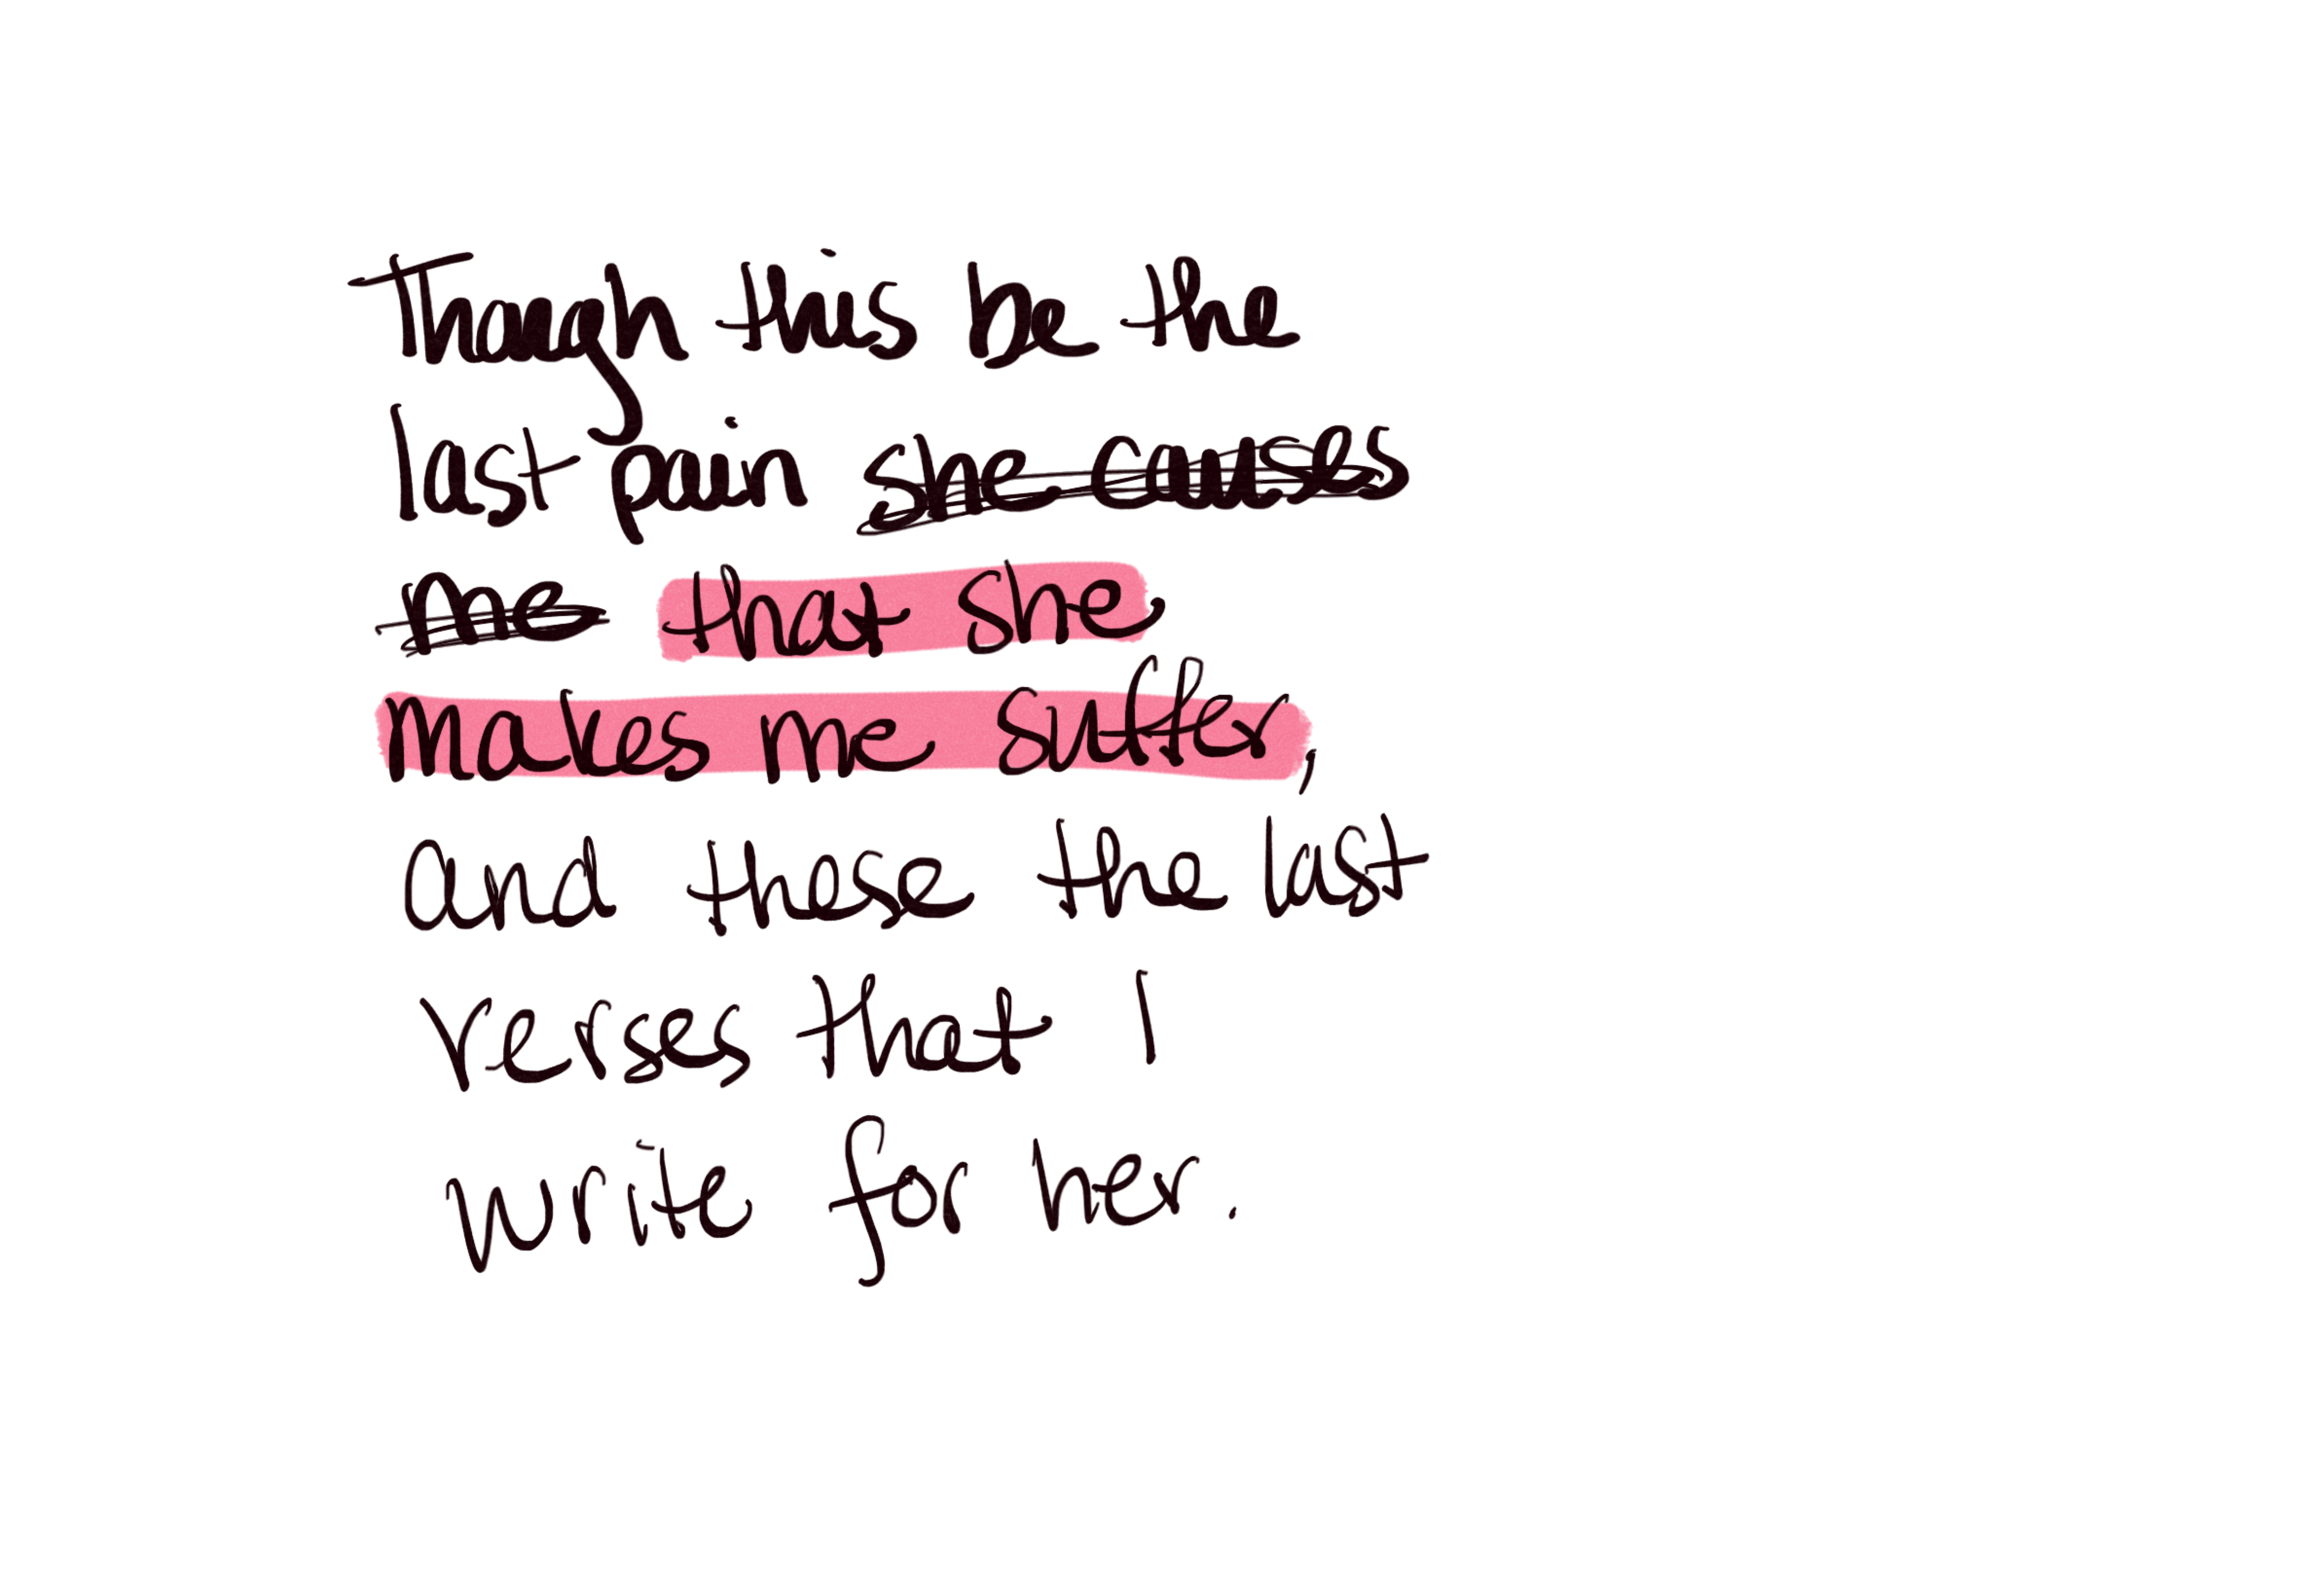 Though this be the
last pain she causes
me that she
makes me suffer,
and these the last
verses that I
write for her.